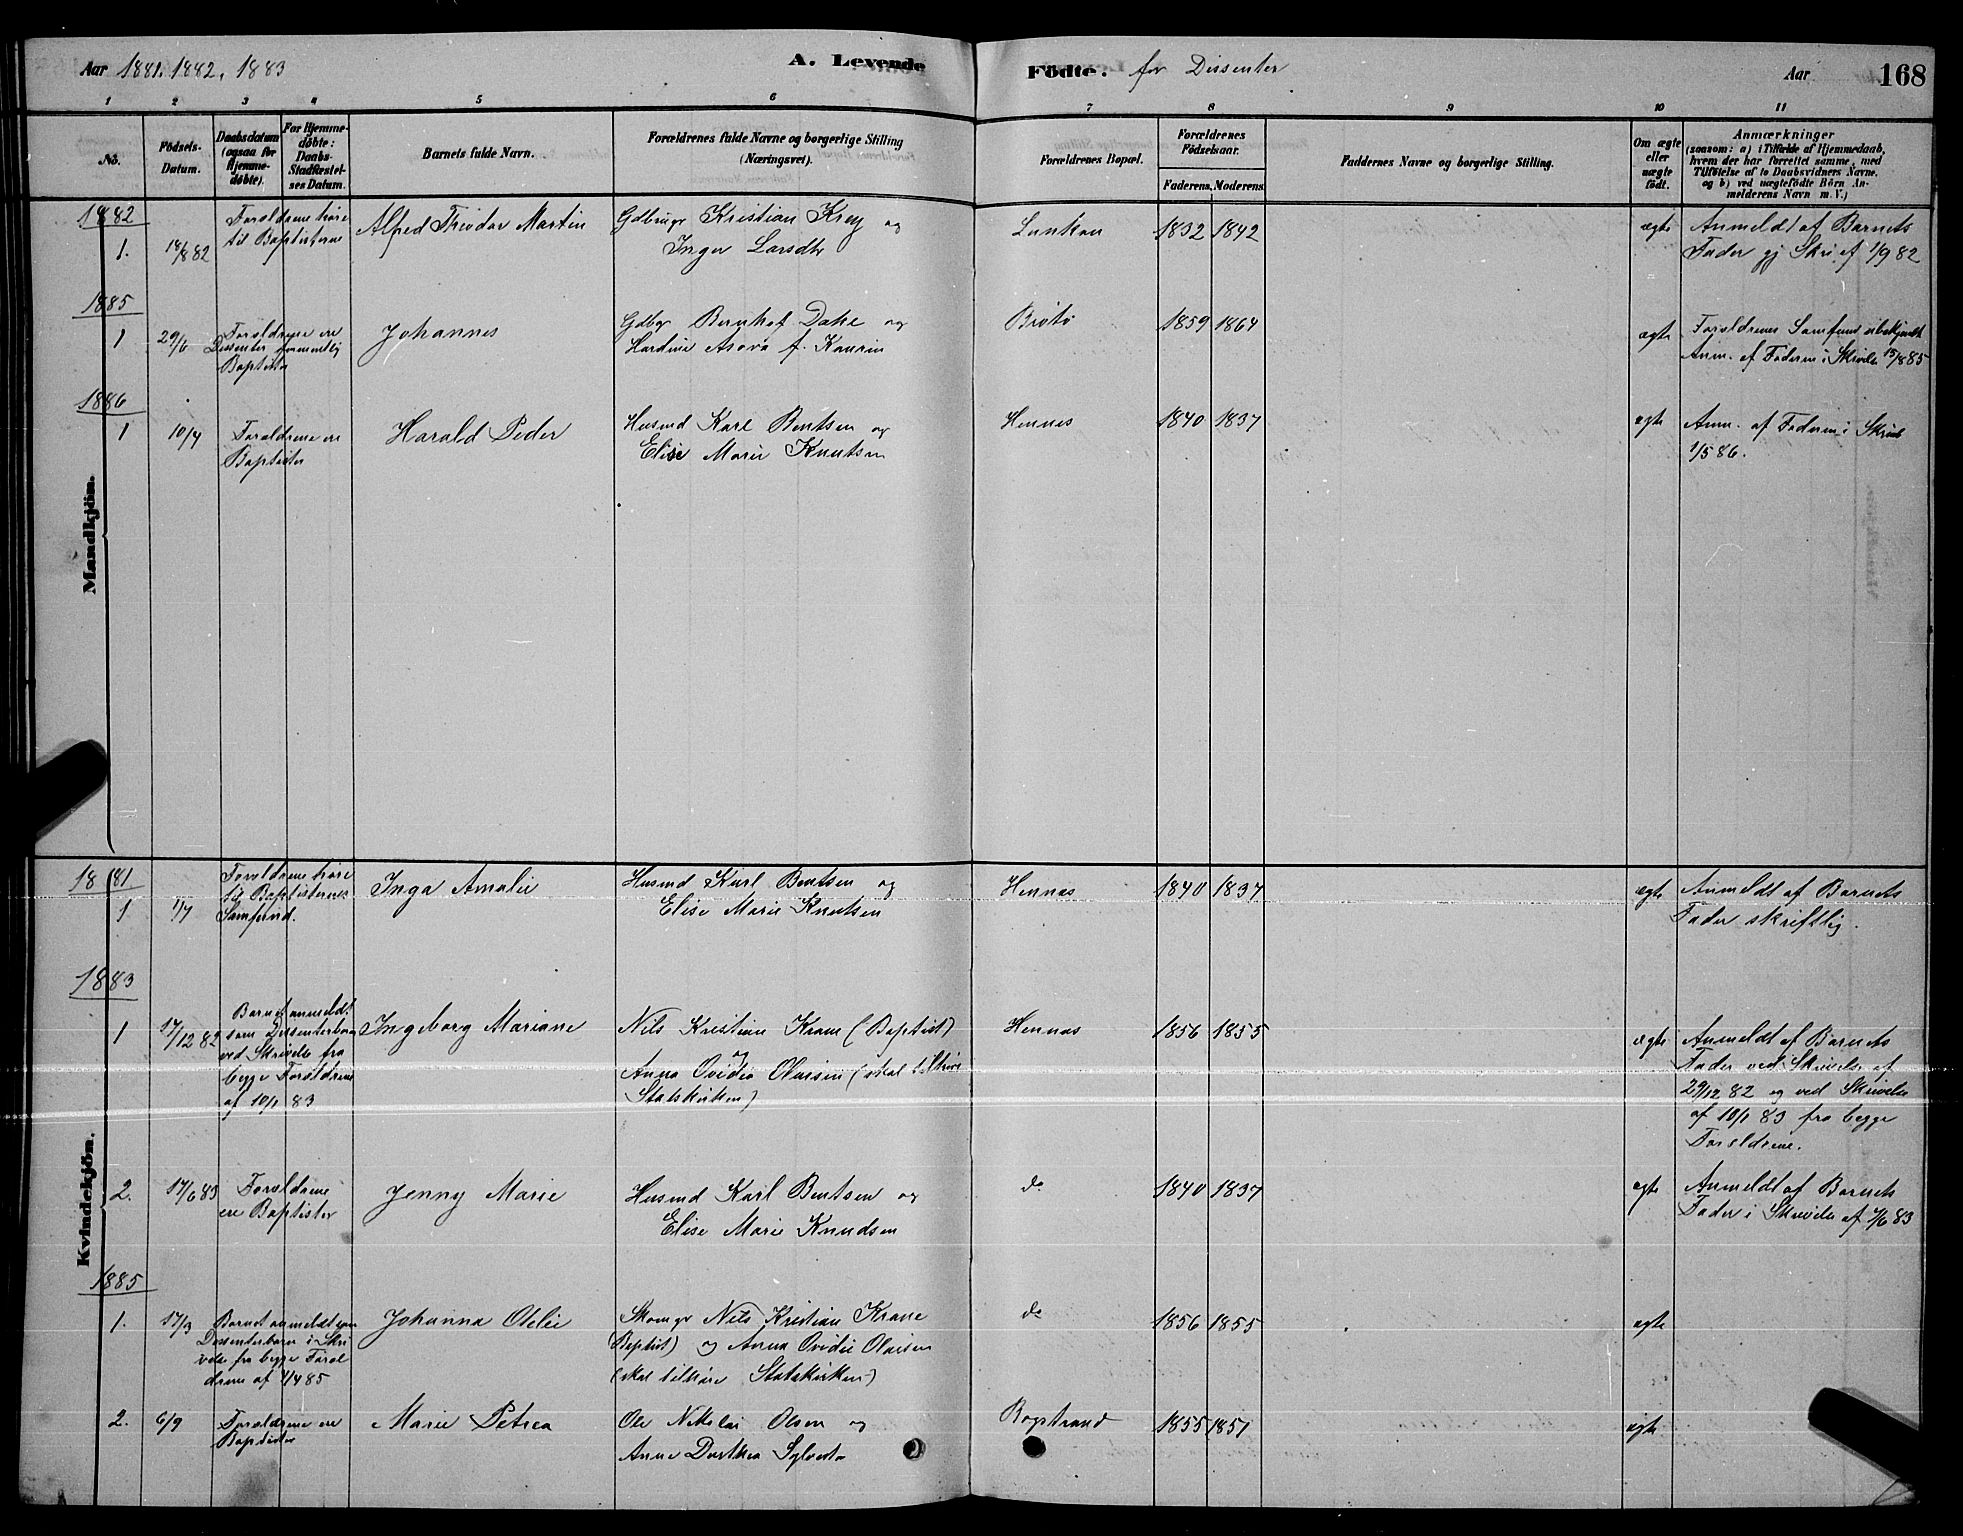 Aar 1881, 1882, 1883
A. Levende Födte. for Dissenter
Aar 168
1 2 3 4 5 6 7 8 9 10 11
No.
Födsels-
Datum.
Daabsdatum
(ogsaa for
Hjemme-
döbte).
For Hjemme-
döbte:
Daabs-
Stadfæstel-
ses Datum.
Barnets fulde Navn.
Forældrenes fulde Navne og borgerlige Stilling
(Næringsvei).
Forældrenes Bopæl.
Forældrenes
Födselsaar.
Faderens. Moderens.
Faddernes Navne og borgerlige Stilling.
Om ægte
eller
uægte
födt.
Anmærkninger
(saasom: a) i Tilfælde af Hjemmedaab,
hvem der har forrettet samme, med
Tilföielse af to Daabsvidners Navne.
og b) ved uægtefödte Börn An-
melderens Navn m. V.)
Mandkjön.
1882
1. 18/8 82
Forældrene höre
til Baptisterne
Alfred Theodor Martin
Gdbruger Kristian Krey og
Inger Larsdtr
Lunkan
1832 1842
ægte
Anmeldt af Barnets
Fader gj Skri af 1/9 82
1885
1 29/6
Forældrene ere
Dissenter formentlig
Baptister
Johannes
Gdbgr Bernhof Dahe og
Hardine Asora f. Kaurin
Brötö
1859 1864
ægte
Forældrenes Samfund ubekjendt
Anm. af Faderen i Skrivelse 15/8 85
1886
1 10/4
Forældrene ere
Baptister
Harald Peder
Husmd Karl Bentsen og
Elise Marie Knutsen
Hennes
1840 1837
ægte
Anm. af Faderen i Skriv
1/5 86.
Kvindekjön.
1881
1 1/7
Forældrene höre
til Baptisternes
Samfund.
Inga Amalie
Husmd Karl Bentsen og
Elise Marie Knutsen
Hennes
1840 1837
ægte
Anmeldt af Barnets
Fader skriftlig.
1883
1 17/12 82
Barnet anmeldt
som Dissenterbarn
ved Skrivelse fra
begge Forældrene
af 10/1 83
Ingeborg Mariane
Nils Kristian Krane (Baptist)
og
Anna Ovidia Olaisen (skal tilhöre
Statskirken)
Hennes
1856 1855
ægte
Anmeldt af Barnets
Fader ved Skrivelse af
29/12 82 og ved Skrivelse
af 10/1 83 fra begge
Forældrene.
2. 17/6 83
Forældrene
ere Baptister
Jenny Marie
Husmd Karl Bentsen og
Elise Marie Knudsen
do
1840 1837
ægte
Anmeldt af Barnets
Fader i Skrivelse af /6 83
1885
1. 17/3
Barnet anmeldt som
Dissenterbarn i Skri
velse fra begge Foræl
drene af 1/4 85
Johanna Otelie
Skomgr Nils Kristian Krane
(Baptist) og Anna Ovidie Olaisen
(skal tilhöre Statskirken)
do
1856 1855
ægte
2. 6/9
Forældrene ere
Baptister
Marie Petrea
Ole Nikolai Olsen og
Anne Dorthea Sylvest
Bogstrand
1855 1851
ægte